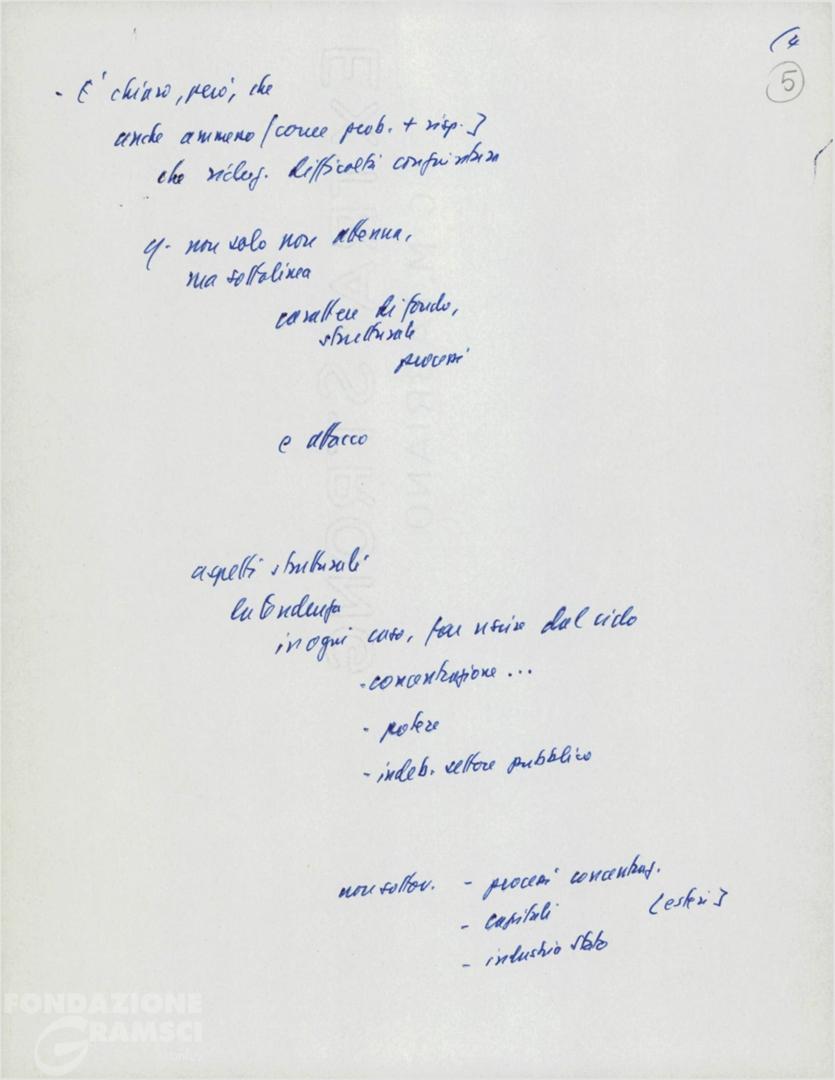 (4
5
- E' chiaro, però, che
anche ammesso (come prob. + risp.)
che difficoltà congiuntura
q. non solo non attenua,
ma sottolinea
carattere di fondo,
strutturale
processi
e attacco
aspetti strutturali
la tendenza
in ogni caso, far uscire dal ciclo
- concentrazione ...
- potere
- indeb. settore pubblico
non sottov. - processi concentraz.
- capitali (esteri)
- industria stato
FONDAZIONE
GRAMSCI